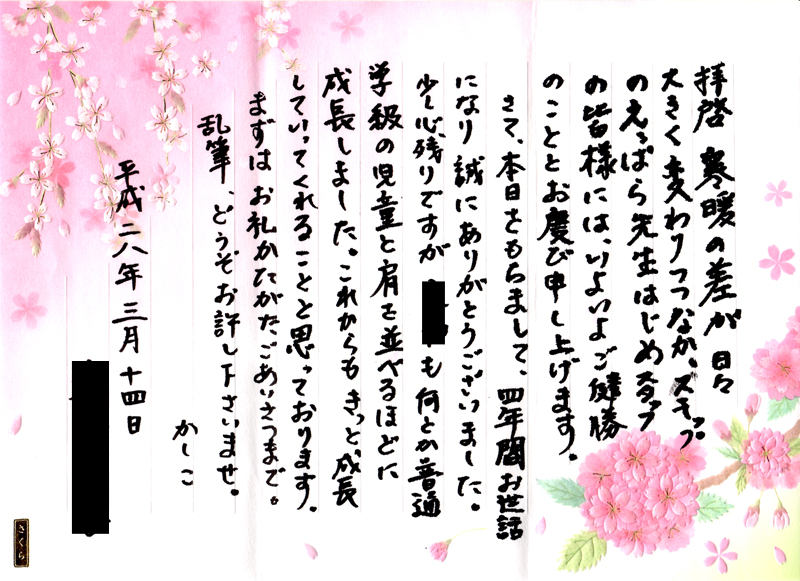 拝啓 寒暖の差が日々
大きく変わりつつなか、ステップ
のえっぱら先生はじめスタッフ
の皆様には、いよいよご健勝
のこととお慶び申し上げます。
さて、本日をもちまして、四年間お世話
になり誠にありがとうございました。
少し心残りですが も何とか普通
学級の児童と肩を並べるほどに
成長しました。これからもきっと成長
していってくれることと思っております。
まずはお礼かたがたごあいさつまで。
乱筆、どうぞお許し下さいませ。
かしこ
平成二八年三月十四日
さくら